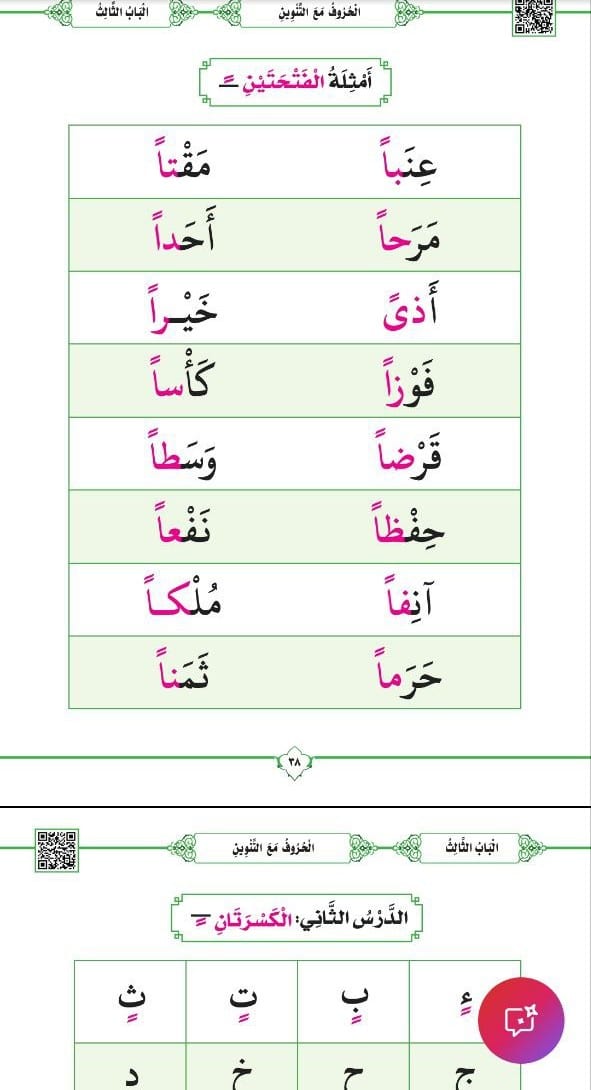 الْبَابُ الثَّالِثُ الْحُرُوفُ مَعَ التَّنْوِينِ
أَمْثِلَةُ الْفَتْحَتَيْنِ ـً
عِنَباً مَقْتاً
مَرَحاً أَحَداً
أَذىً خَيْـراً
فَوْزاً كَأْساً
قَرْضاً وَسَطاً
حِفْظاً نَفْعاً
آنِفاً مُلْكـاً
حَرَماً ثَمَناً
٣٨
الْبَابُ الثَّالِثُ الْحُرُوفُ مَعَ التَّنْوِينِ
الدَّرْسُ الثَّانِي: الْكَسْرَتَانِ ـٍ
ءٍ بٍ تٍ ثٍ
ج ح خ د